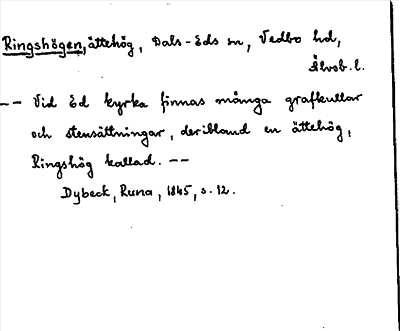 Ringshögen, ättehög, Dals-Eds sn, Vedbo hd,
Älvsb.l.
-- Vid Ed kyrka finnas många grafkullar
och stensättningar, deribland en ättehög,
Ringshög kallad. --
Dybeck, Runa, 1845, s. 12.